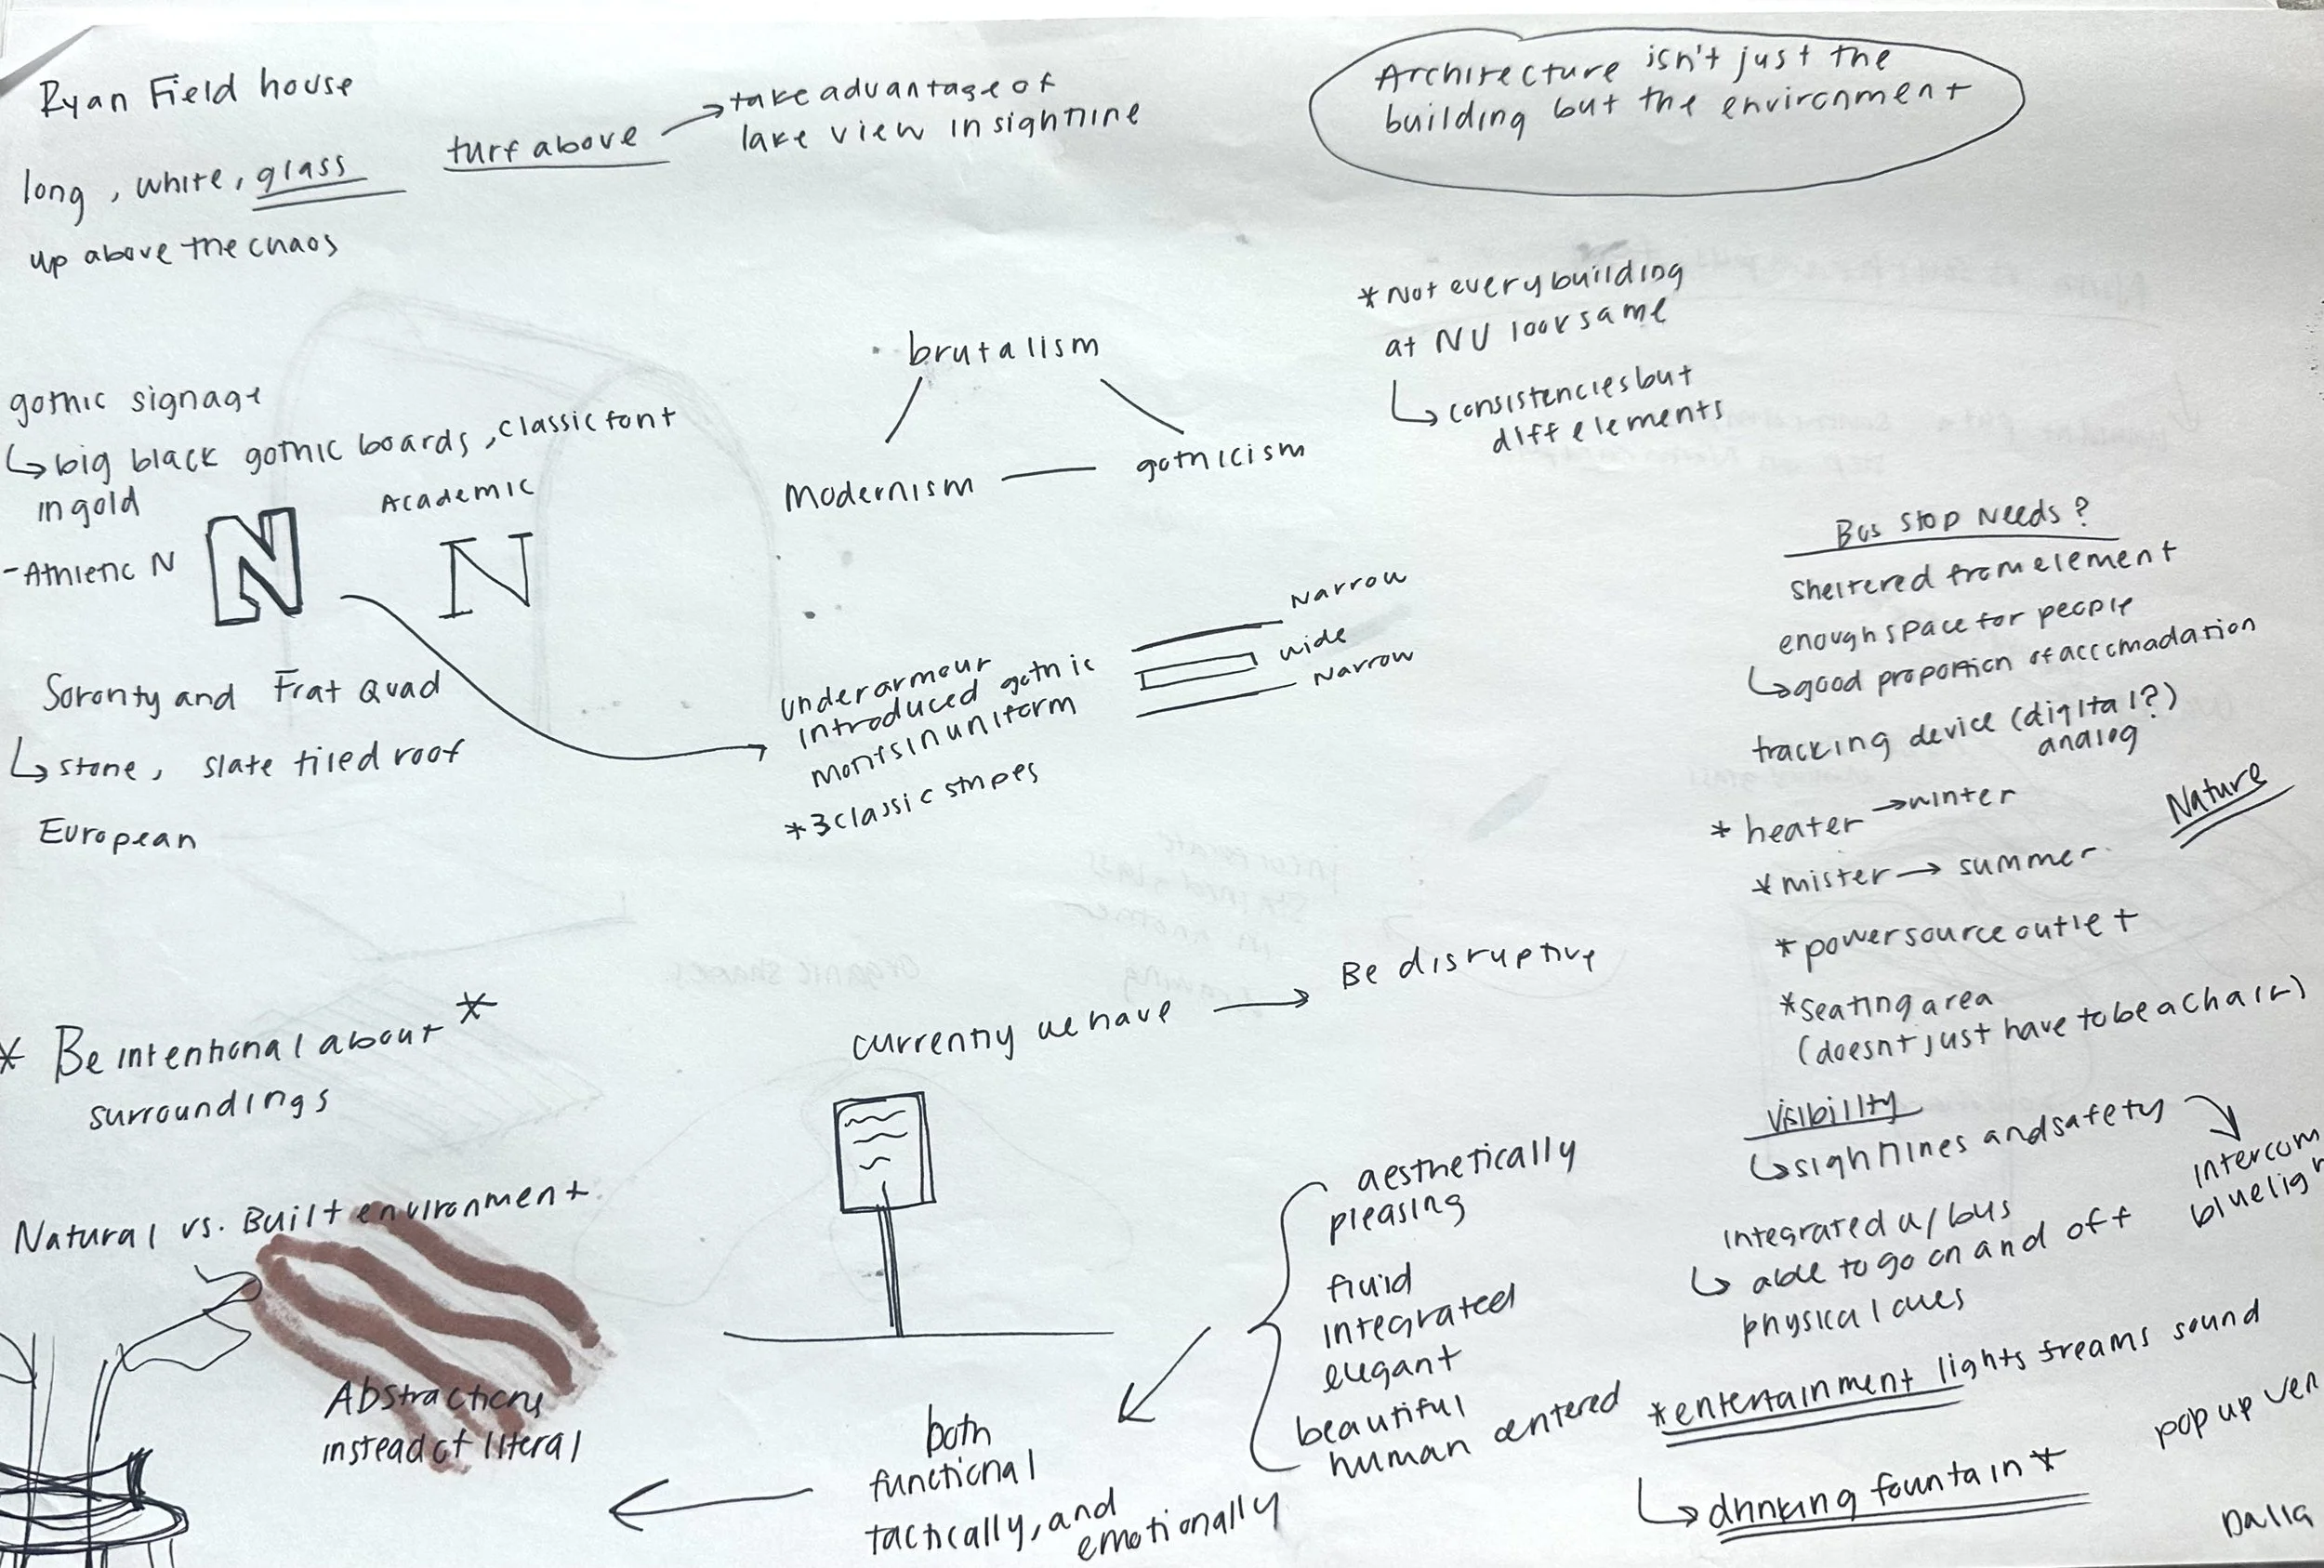 Ryan Field house
long, white, glass
up above the chaos
turf above
→ take advantage of
lake view in sightline
Architecture isn't just the
building but the environment
gothic signage
↳ big black gothic boards, classic font
in gold
- Athletic N
N
Academic
N
Sorority and Frat Quad
↳ stone, slate tiled roof
European
brutalism
Modernism
gothicism
* Not every building
at NU look same
↳ consistencies but
diff elements
underarmour
introduced gothic
in uniform
* 3 classic stripes
Narrow
wide
Narrow
Bus Stop Needs?
Sheltered from element
enough space for people
↳ good proportion of accomadation
tracking device (digital?)
analog
* heater → winter
* mister → summer
Nature
* power source outlet
* seating area
(doesnt just have to be a chair)
Visibility
↳ sightlines and safety
intercom
integrated w/ bus
↳ able to go on and off
physical cues
* entertainment lights sound
pop up
↳ drinking fountain *
* Be intentional about *
surroundings
Natural vs. Built environment
Abstractions
instead of literal
currently we have → Be disruptive
aesthetically
pleasing
fluid
integrated
elegant
beautiful
human centered
both
functional
tactically, and
emotionally